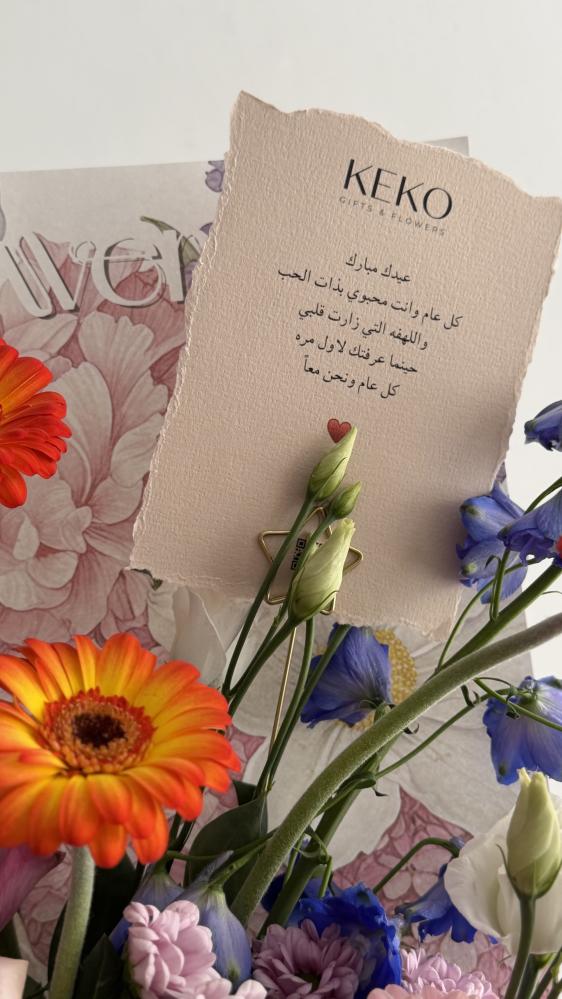 KEKO
GIFTS & FLOWERS
عيدك مبارك
كل عام وانت محبوبي بذات الحب
واللهفه التي زارت قلبي
حينما عرفتك لاول مره
كل عام ونحن معاً